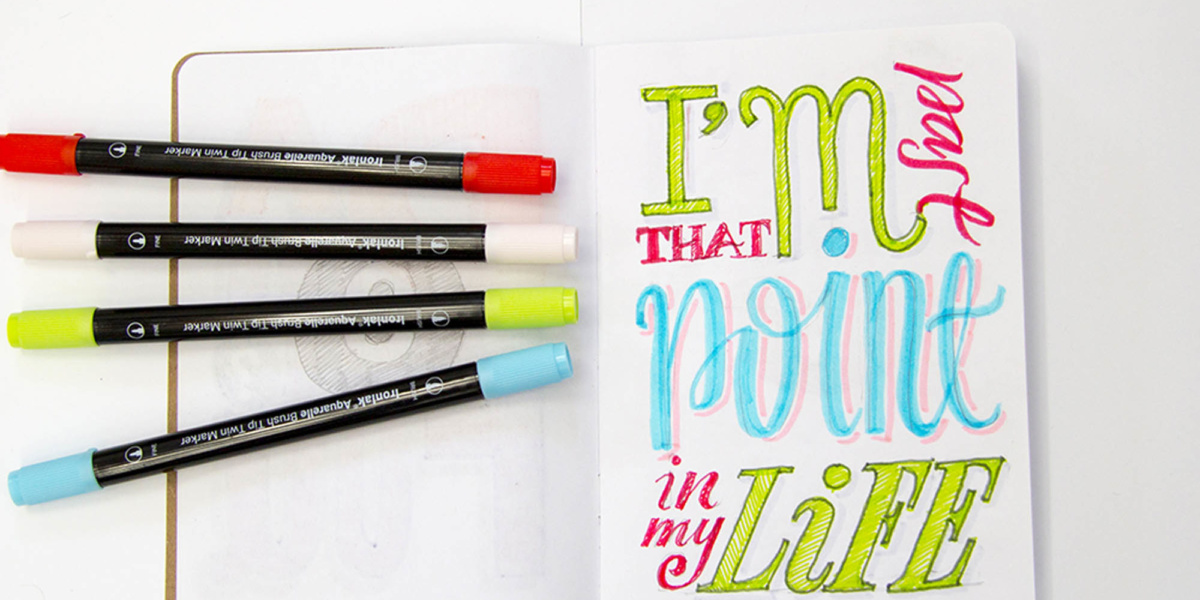 FINE Ironlak® Aquarelle Brush Tip Twin Marker
FINE Ironlak® Aquarelle Brush Tip Twin Marker
FINE Ironlak® Aquarelle Brush Tip Twin Marker
FINE Ironlak® Aquarelle Brush Tip Twin Marker
I'm past
THAT
point
in
my LiFE